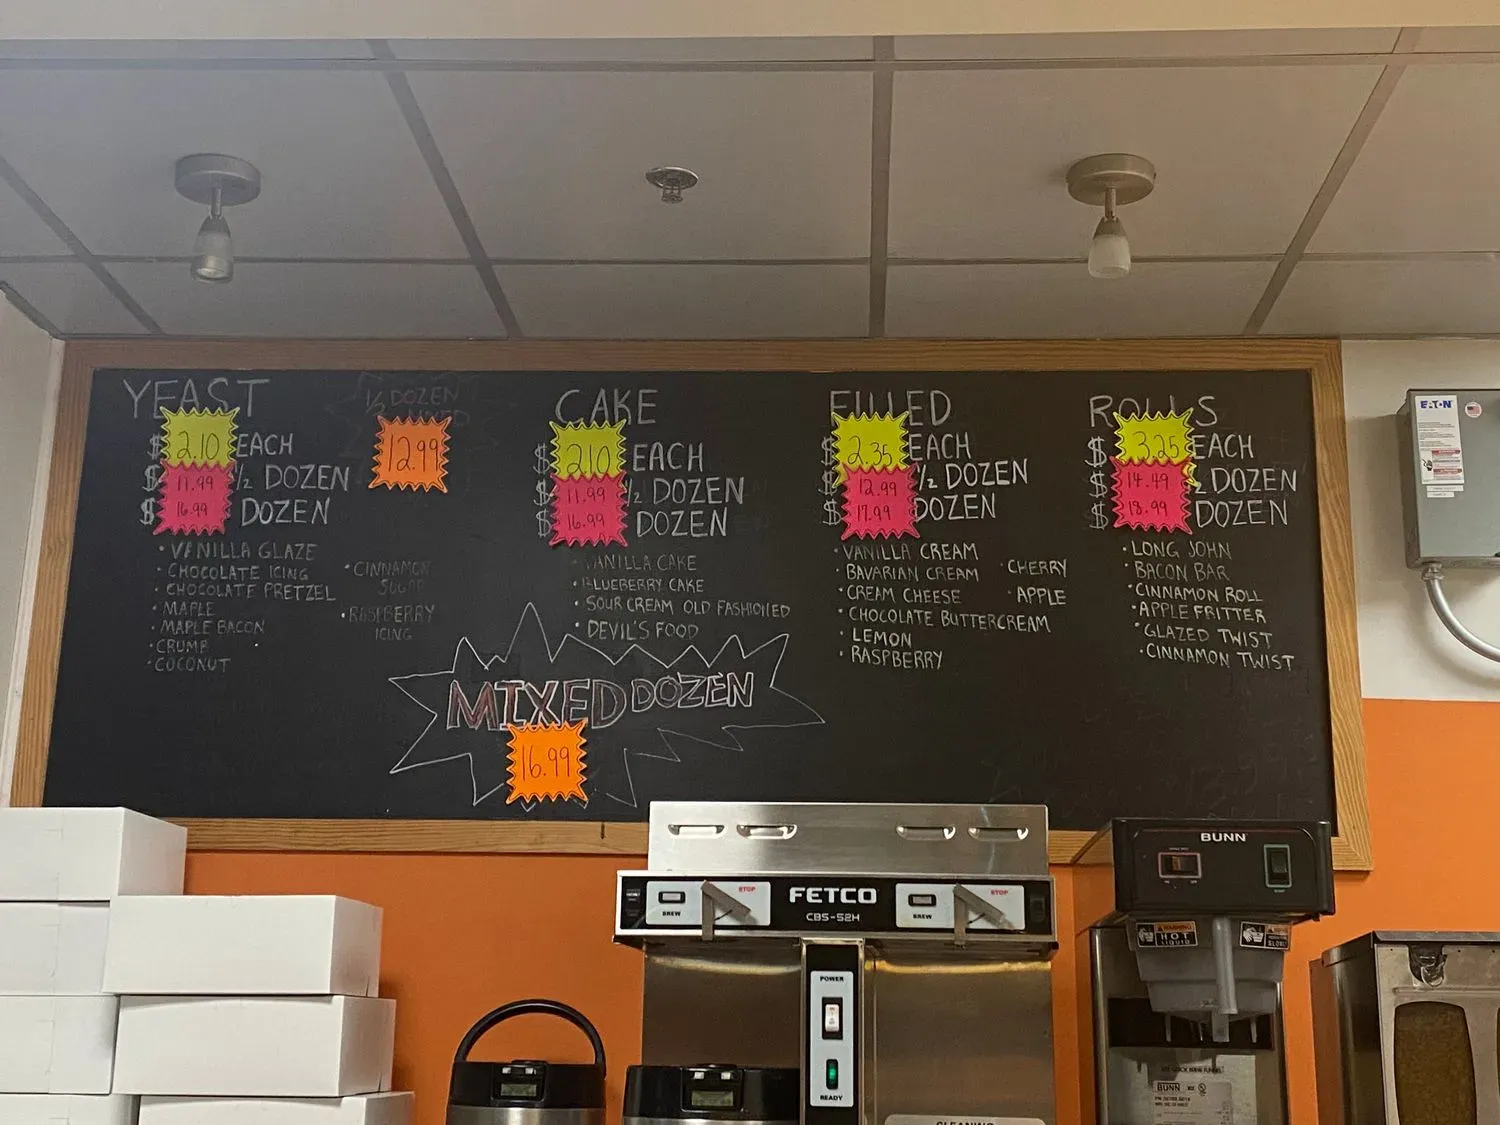 YEAST
$ 2.10 EACH
$ 11.99 1/2 DOZEN
$ 16.99 DOZEN
• VANILLA GLAZE
• CHOCOLATE ICING
• CHOCOLATE PRETZEL
• MAPLE
• MAPLE BACON
• CRUMB
• COCONUT
• CINNAMON
SUGAR
• RASPBERRY
ICING
1/2 DOZEN
MIXED
12.99
CAKE
$ 2.10 EACH
$ 11.99 1/2 DOZEN
$ 16.99 DOZEN
• VANILLA CAKE
• BLUEBERRY CAKE
• SOUR CREAM OLD FASHIONED
• DEVIL'S FOOD
MIXED DOZEN
16.99
FILLED
$ 2.35 EACH
$ 12.99 1/2 DOZEN
$ 17.99 DOZEN
• VANILLA CREAM
• BAVARIAN CREAM
• CREAM CHEESE
• CHOCOLATE BUTTERCREAM
• LEMON
• RASPBERRY
• CHERRY
• APPLE
ROLLS
$ 3.25 EACH
$ 14.49 1/2 DOZEN
$ 18.99 DOZEN
• LONG JOHN
• BACON BAR
• CINNAMON ROLL
• APPLE FRITTER
• GLAZED TWIST
• CINNAMON TWIST
EATON
BUNN
STOP
BREW
FETCO
CBS-52H
STOP
BREW
POWER
READY
WARNING
HOT
LIQUID
BUNN
CLEANING